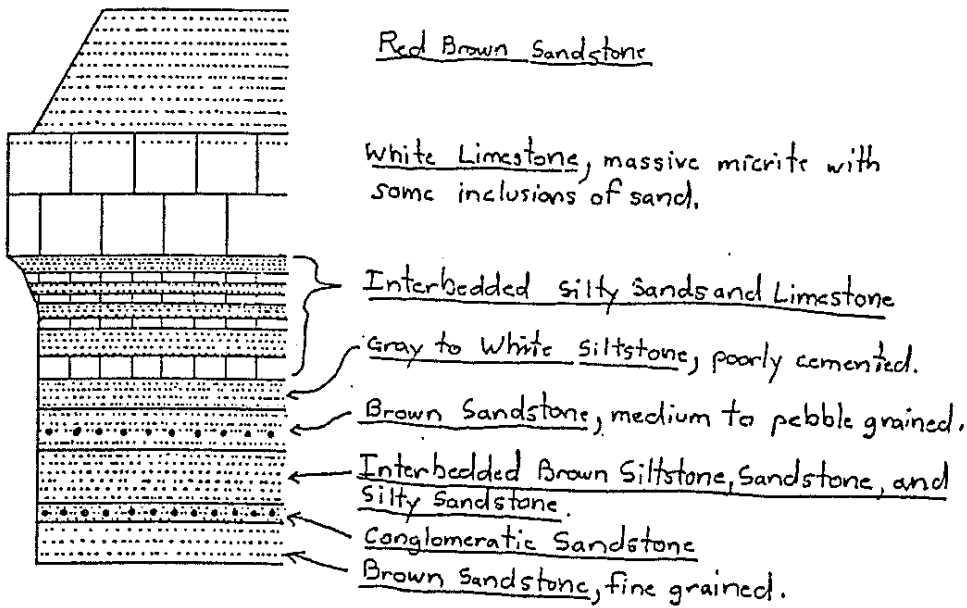 Red Brown Sandstone
White Limestone, massive micrite with
some inclusions of sand.
Interbedded Silty Sands and Limestone
Gray to White Siltstone, poorly cemented.
Brown Sandstone, medium to pebble grained.
Interbedded Brown Siltstone, Sandstone, and
Silty Sandstone.
Conglomeratic Sandstone
Brown Sandstone, fine grained.